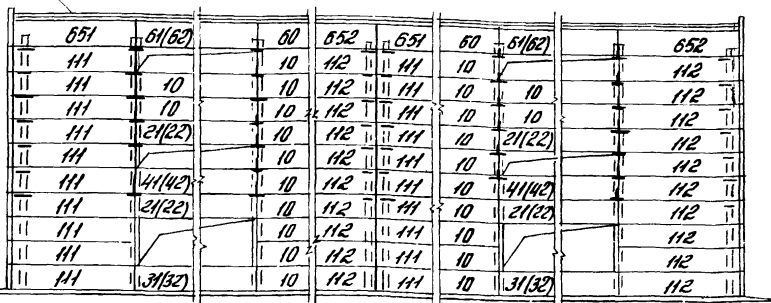 651 61(62) 60 652 651 60 61(62) 652
111 10 112 111 10 112
111 10 10 112 111 10 10 112
111 10 10 112 111 10 10 112
111 21(22) 10 112 111 10 21(22) 112
111 10 112 111 10 112
111 41(42) 10 112 111 10 41(42) 112
111 21(22) 10 112 111 10 21(22) 112
111 10 112 111 10 112
111 10 112 111 10 112
111 31(32) 10 112 111 10 31(32) 112